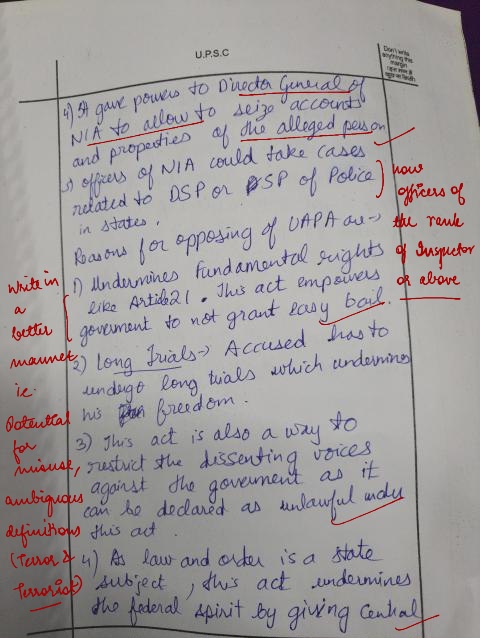 U.P.S.C
Don't write
anything this
margin
4) It gave powers to Director General of
NIA to allow to seize accounts
and properties of the alleged person
5) officers of NIA could take cases
related to DSP or SP of Police
in states.
now
officers of
the rank
of Inspector
or above
Reasons for opposing of UAPA are→
1) Undermines Fundamental rights
like Article 21. This act empowers
goverment to not grant easy bail.
2) Long Trials→ Accused has to
undergo long trials which undermines
his freedom.
3) This act is also a way to
restrict the dissenting voices
against the goverment as it
can be declared as unlawful under
this act.
4) As law and order is a state
subject, this act undermines
the federal spirit by giving Central
Write in
a
better
manner
i.e.
Potential
for
misuse,
ambiguous
definitions
(Terror &
Terrorist)